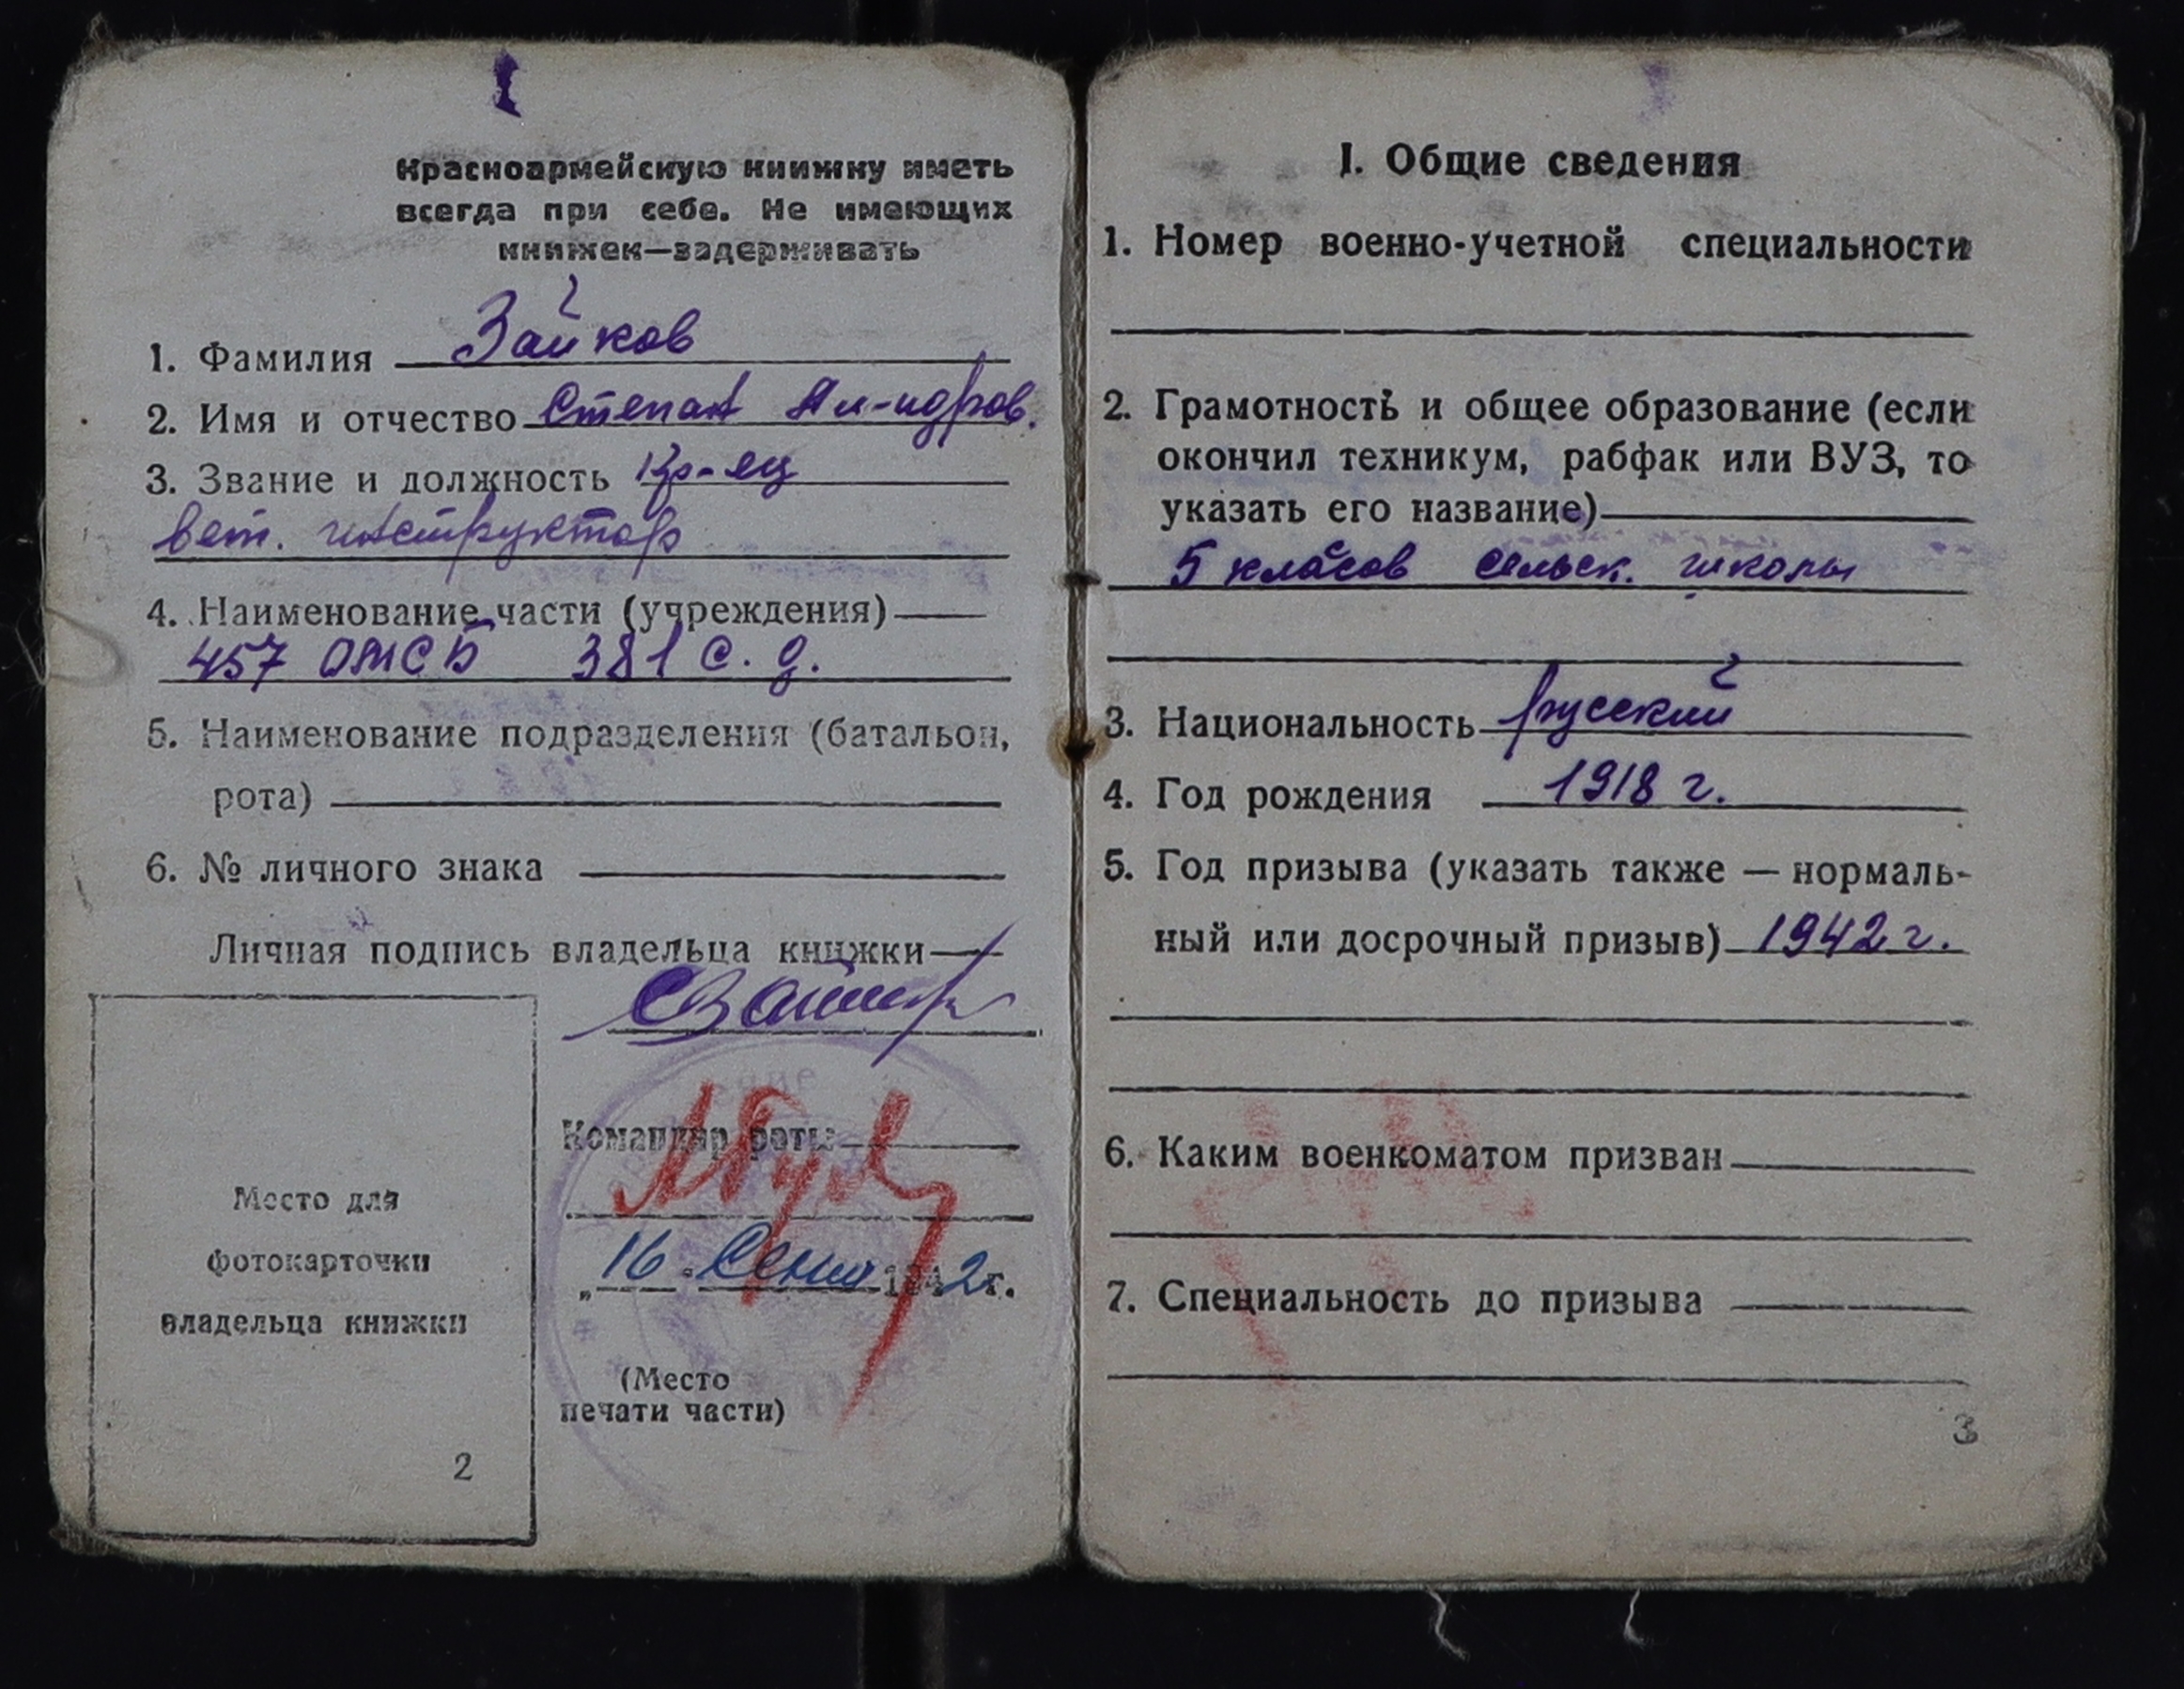 Красноармейскую книжку иметь
всегда при себе. Не имеющих
книжек—задерживать
1. Фамилия Зайков
2. Имя и отчество Степан Ал-ндров.
3. Звание и должность Кр-ец
вет. инструктор
4. Наименование части (учреждения)
457 ОМСБ 381 с. д.
5. Наименование подразделения (батальон,
рота)
6. № личного знака
Личная подпись владельца книжки
Командир роты
„16 " Сентя 1942г.
(Место
печати части)
Место для
фотокарточки
владельца книжки
2
I. Общие сведения
1. Номер военно-учетной специальности
2. Грамотность и общее образование (если
окончил техникум, рабфак или ВУЗ, то
указать его название)
5 класов сельск. школы
3. Национальность русский
4. Год рождения 1918 г.
5. Год призыва (указать также — нормаль-
ный или досрочный призыв) 1942 г.
6. Каким военкоматом призван
7. Специальность до призыва
3